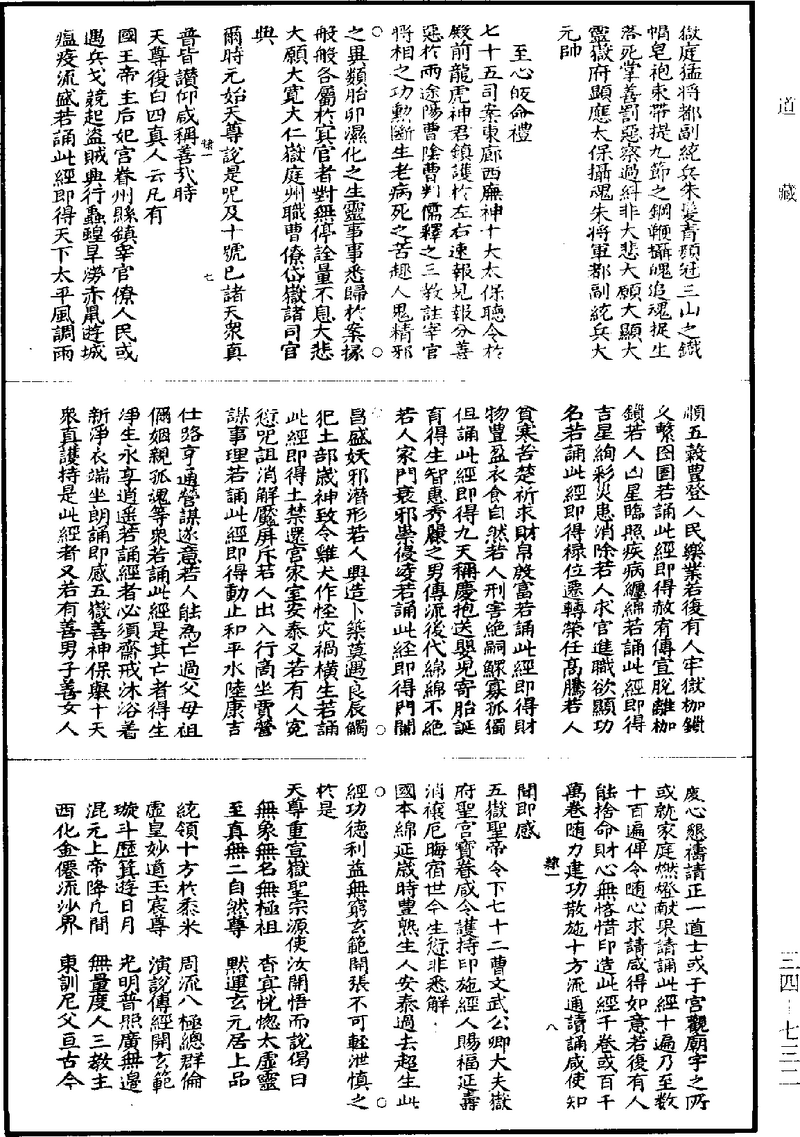 道藏
嶽庭猛將都副統兵朱髮青顏冠三山之鐵
帽皂袍束帶提九節之鋼鞭攝魄追魂捉生
落死掌善罰惡察過糾非大悲大願大顯大
靈嶽府顯應太保攝魂朱將軍都副統兵大
元帥
至心皈命禮
七十五司案東廊西廡神十大太保聽令於
殿前龍虎神君鎮護於左右速報見報分善
惡於兩途陽曹陰曹判儒釋之三教註宰官
將相之功勳斷生老病死之苦趣人鬼精邪
之異類胎卵濕化之生靈事事悉歸於案掾
般般各屬於冥官者對無停詮量不息大悲
大願大寬大仁嶽庭州職曹僚岱嶽諸司官
典
爾時元始天尊說是咒及十號已諸天眾真
隸一 七
普皆讚仰咸稱善哉時
天尊復白四真人云凡有
國王帝主后妃宮眷州縣鎮宰官僚人民或
遇兵戈競起盜賊興行蟲蝗旱澇赤鼠遊城
瘟疫流盛若誦此經即得天下太平風調雨
順五穀豊登人民樂業若復有人牢獄枷鎖
久繫囹圄若誦此經即得赦宥傳宣脫離枷
鎖若人凶星臨照疾病纏綿若誦此經即得
吉星絢彩災患消除若人求官進職欲顯功
名若誦此經即得祿位遷轉榮任高騰若人
貧寒苦楚祈求財帛殷富若誦此經即得財
物豊盈衣食自然若人刑害絕嗣鰥寡孤獨
但誦此經即得九天稱慶抱送嬰兒寄胎誕
育得生智惠秀麗之男傳流後代綿綿不絕
若人家門衰邪祟侵凌若誦此經即得門闌
昌盛妖邪潛形若人興造卜築莫遇良辰觸
犯土部歲神致令雞犬作怪灾禍橫生若誦
此經即得土禁還宮家室安泰又若有人冤
愆咒詛消解魘屏斥若人出入行商坐賈營
謀事理若誦此經即得動止和平水陸康吉
仕路亨通營謀遂意若人能為亡過父母祖
儞姻親孤魂等眾若誦此經是其亡者得生
淨生永享逍遥若誦經者必須齋戒沐浴着
新淨衣端坐朗誦即感五嶽善神保舉十天
眾真護持是此經者又若有善男子善女人
慶心懇禱請正一道士或于宮觀廟宇之所
或就家庭燃燈献果請誦此經十遍乃至數
十百遍俾令随心求請咸得如意若復有人
能捨命財心無恡惜印造此經千卷或百千
萬卷随力建功散施十方流通讀誦咸使知
隸一 八
聞即感
五嶽聖帝令下七十二曹文武公卿大夫嶽
府聖宮寶眷咸令護持印施經人賜福延壽
消禳厄晦宿世今生愆非悉解
國本綿延歲時豊熟生人安泰過去超生此
經功德利益無窮玄範開張不可輕泄慎之
於是
天尊重宣嶽聖宗源使汝開悟而說偈曰
無象無名無極祖 杳冥恍惚太虛靈
至真無二自然尊 默運玄元居上品
統領十方於黍米 周流八極總群倫
虛皇妙道玉宸尊 演說傳經開玄範
璇斗歷箕遊日月 光明普照廣無邊
混元上帝降凡間 無量度人三教主
西化金僊流沙界 東訓尼父亘古今
三四—七三二